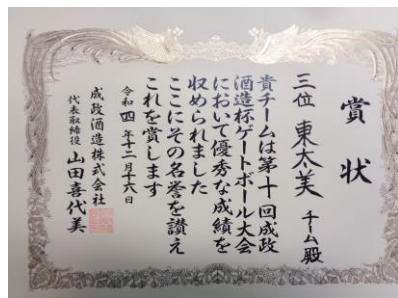 賞状
三位 東太美 チーム殿
貴チームは第十回成政
酒造杯ゲートボール大会
において優秀な成績を
収められました
ここにその名誉を讃え
これを賞します
令和四年十二月十六日
成政酒造株式会社
代表取締役 山田喜代美